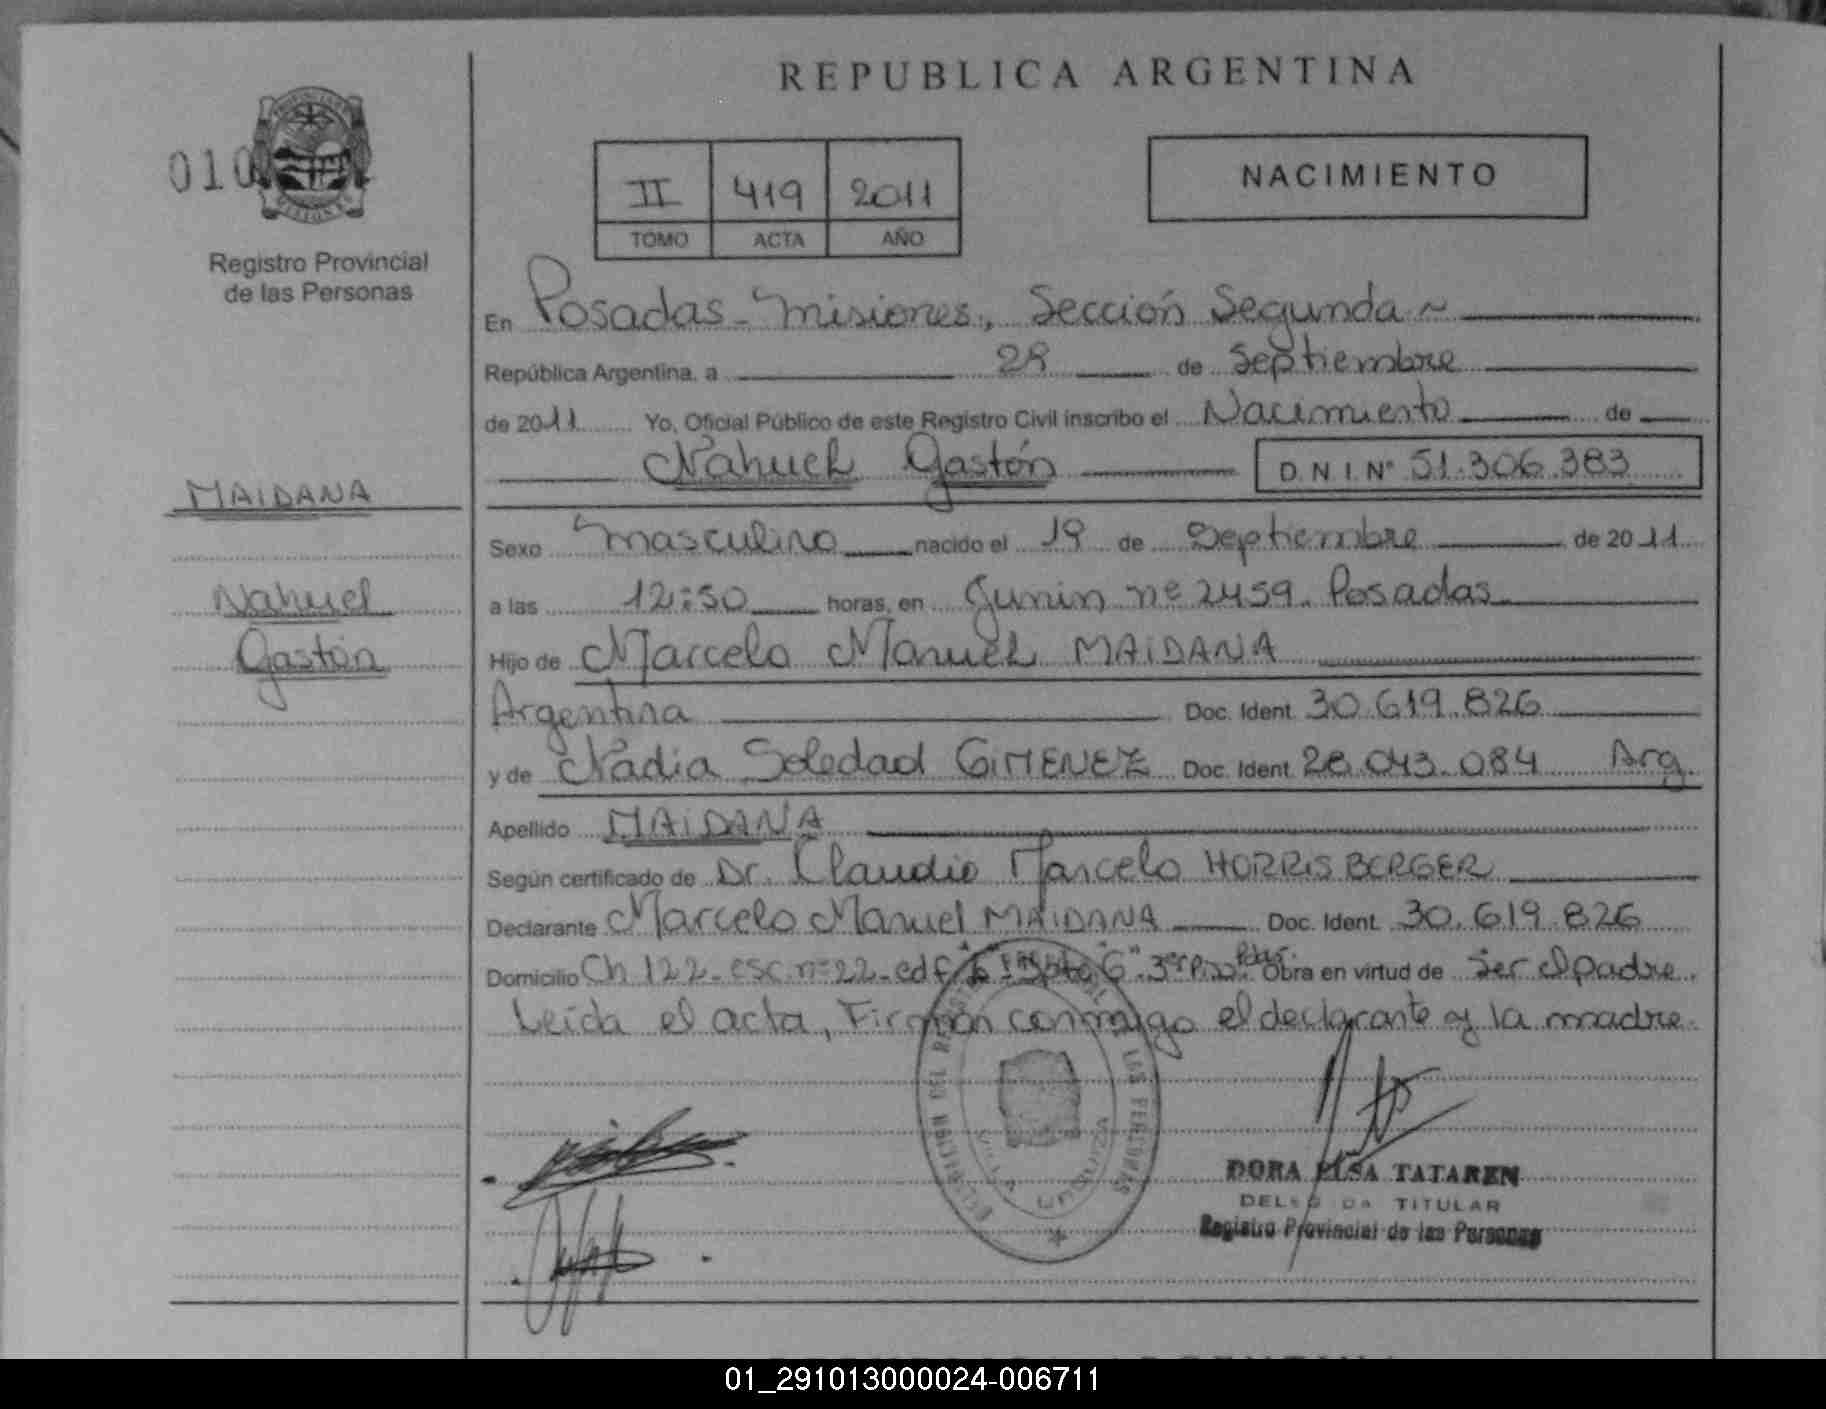 REPUBLICA ARGENTINA
010
Registro Provincial
de las Personas
II 419 2011
TOMO ACTA AÑO
NACIMIENTO
En Posadas - Misiones, Sección Segunda
República Argentina, a 29 de Septiembre
de 2011 Yo, Oficial Público de este Registro Civil inscribo el Nacimiento de
Nahuel Gastón D.N.I.N° 51.306.383
MAIDANA
Nahuel
Gastón
Sexo Masculino nacido el 19 de Septiembre de 2011
a las 12:50 horas, en Junin nº 2459. Posadas
Hijo de Marcelo Manuel MAIDANA
Argentina Doc. Ident. 30.619.826
y de Nadia Soledad GIMENEZ Doc. Ident. 28.043.084 Arg.
Apellido MAIDANA
Según certificado de Dr. Claudio Marcelo HORRISBERGER
Declarante Marcelo Manuel MAIDANA Doc. Ident. 30.619.826
Domicilio Ch 122 - esc. nº 22 - edf. 3er Piso Pdas. Obra en virtud de ser el padre.
Leída el acta, Firman conmigo el declarante y la madre.
VILLA URQUIZA
DORA ELSA TATAREN
TITULAR
Registro Provincial de las Personas
01_291013000024-006711